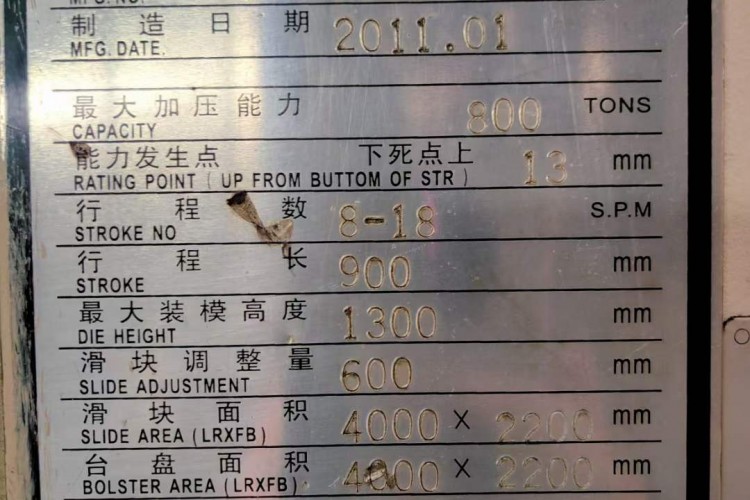 制造日期 2011.01
MFG. DATE.
最大加压能力 800 TONS
CAPACITY
能力发生点 下死点上 13 mm
RATING POINT ( UP FROM BUTTOM OF STR )
行程数 8-18 S.P.M
STROKE NO
行程长 900 mm
STROKE
最大装模高度 1300 mm
DIE HEIGHT
滑块调整量 600 mm
SLIDE ADJUSTMENT
滑块面积 4000 X 2200 mm
SLIDE AREA (LRXFB)
台盘面积 4000 X 2200 mm
BOLSTER AREA (LRXFB)